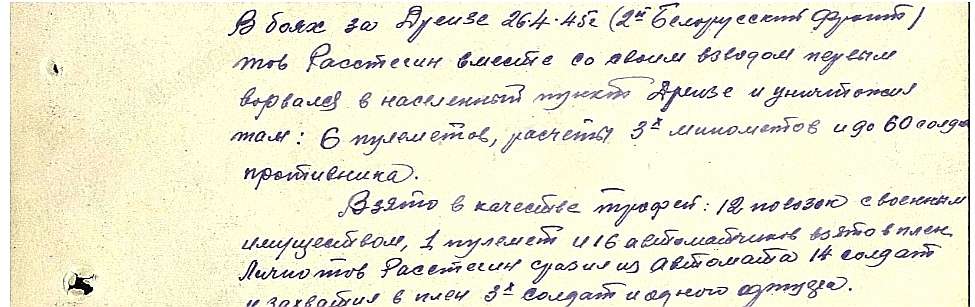 В боях за Дрензе 26.4.45г (2й Белорусский фронт)
тов Расстегин вместе со своим взводом первым
ворвался в населенный пункт Дрензе и уничтожил
там: 6 пулеметов, расчеты 3х минометов и до 60 солдат
противника.
Взято в качестве трофей: 12 повозок с военным
имуществом, 1 пулемет и 16 автоматчиков взято в плен.
Лично тов Расстегин сразил из автомата 14 солдат
и захватил в плен 3х солдат и одного офицера.